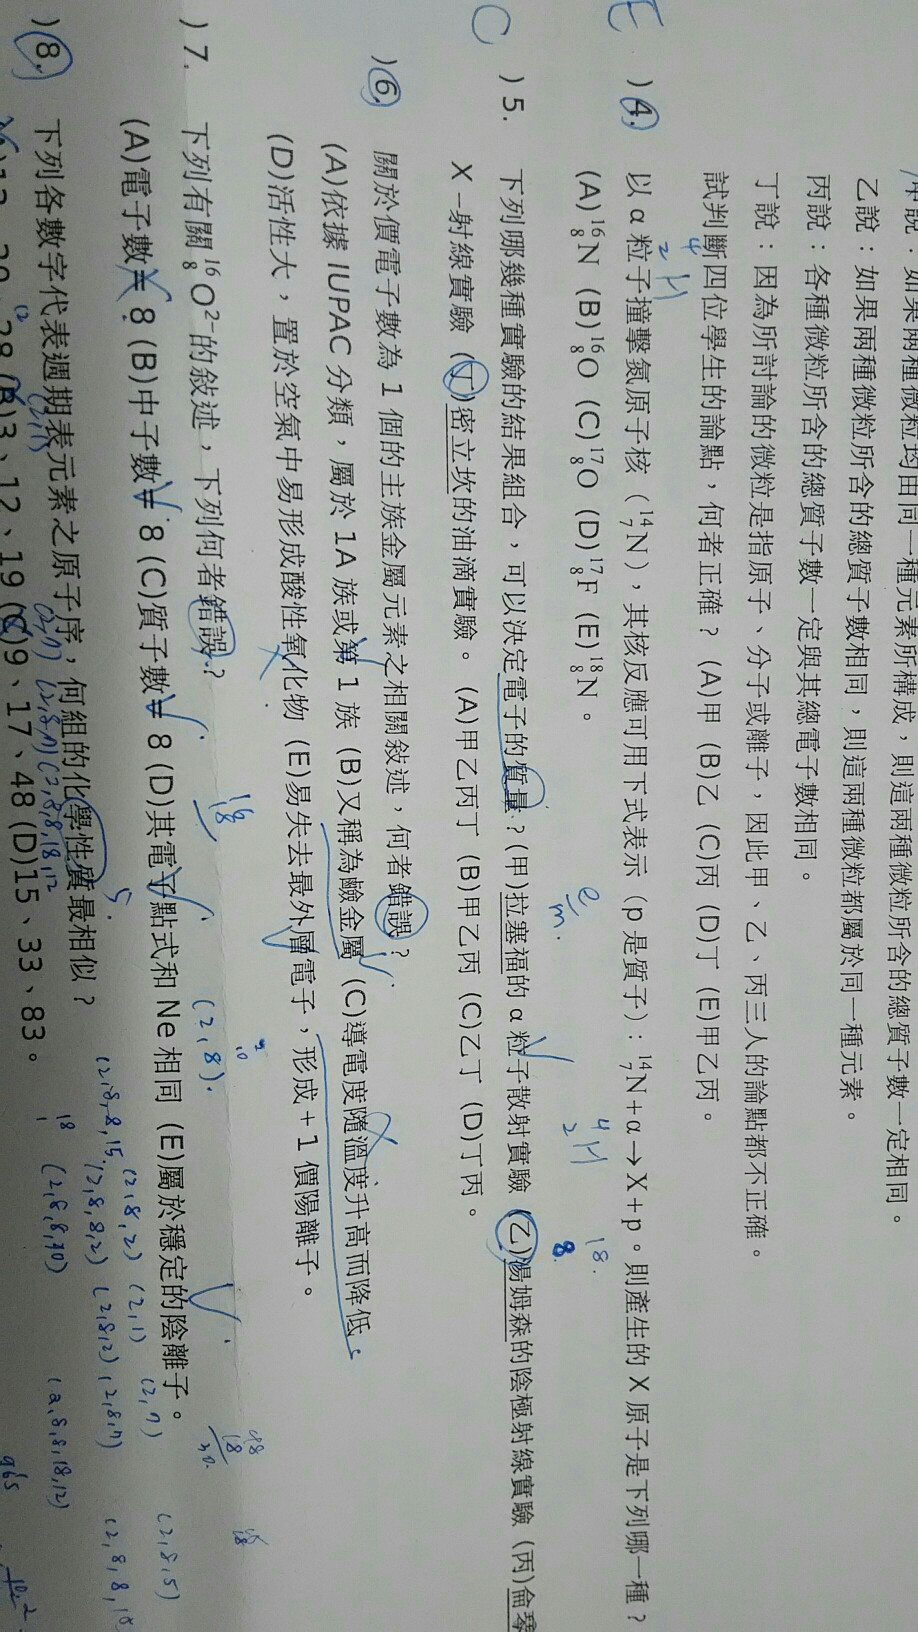 說：如果兩種微粒均由同一種元素所構成，則這兩種微粒所含的總質子數一定相同。
乙說：如果兩種微粒所含的總質子數相同，則這兩種微粒都屬於同一種元素。
丙說：各種微粒所含的總質子數一定與其總電子數相同。
丁說：因為所討論的微粒是指原子、分子或離子，因此甲、乙、丙三人的論點都不正確。
試判斷四位學生的論點，何者正確？ (A)甲 (B)乙 (C)丙 (D)丁 (E)甲乙丙。
E )4. 以 α 粒子撞擊氮原子核（¹⁴₇N），其核反應可用下式表示（p 是質子）：¹⁴₇N＋α→X＋p。則產生的 X 原子是下列哪一種？
(A)¹⁶₈N (B)¹⁶₈O (C)¹⁷₈O (D)¹⁷₈F (E)¹⁸₈N。
C )5. 下列哪幾種實驗的結果組合，可以決定電子的質量？(甲)拉塞福的 α 粒子散射實驗 (乙)湯姆森的陰極射線實驗 (丙)侖琴
X－射線實驗 (丁)密立坎的油滴實驗。 (A)甲乙丙丁 (B)甲乙丙 (C)乙丁 (D)丁丙。
e/m.
⁴₂H
18.
8.
)6. 關於價電子數為 1 個的主族金屬元素之相關敘述，何者錯誤？
(A)依據 IUPAC 分類，屬於 1A 族或第 1 族 (B)又稱為鹼金屬 (C)導電度隨溫度升高而降低
(D)活性大，置於空氣中易形成酸性氧化物 (E)易失去最外層電子，形成＋1 價陽離子。
)7. 下列有關 ¹⁶₈O²⁻的敘述，下列何者錯誤？
(2,8).
(A)電子數＝8 (B)中子數＝8 (C)質子數＝8 (D)其電子點式和 Ne 相同 (E)屬於穩定的陰離子。
(2,8,2) (2,1) (2,7) (2,8,5)
(2,8,8,2) (2,8,2) (2,8,7)
)8. 下列各數字代表週期表元素之原子序，何組的化學性質最相似？
(2,8,8,18,12)
28 (B)3、12、19 (C)9、17、48 (D)15、33、83。